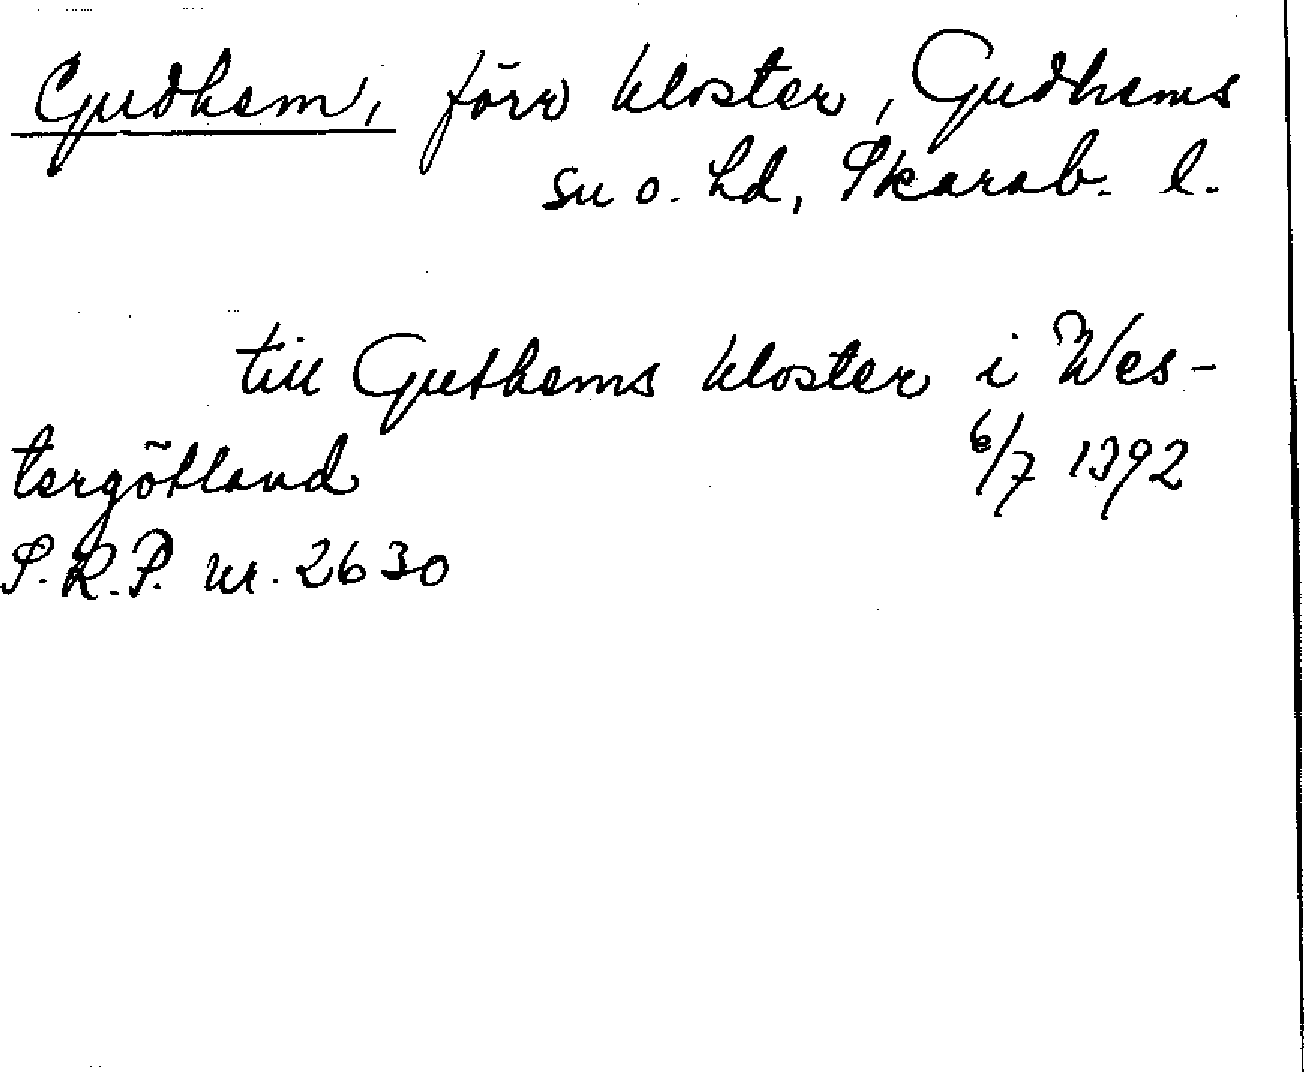 Gudhem, förr kloster, Gudhems
sn o. hd, Skarab. l.
till Guthems kloster i Wes-
tergötland 6/7 1392
S.R.P. nr. 2630